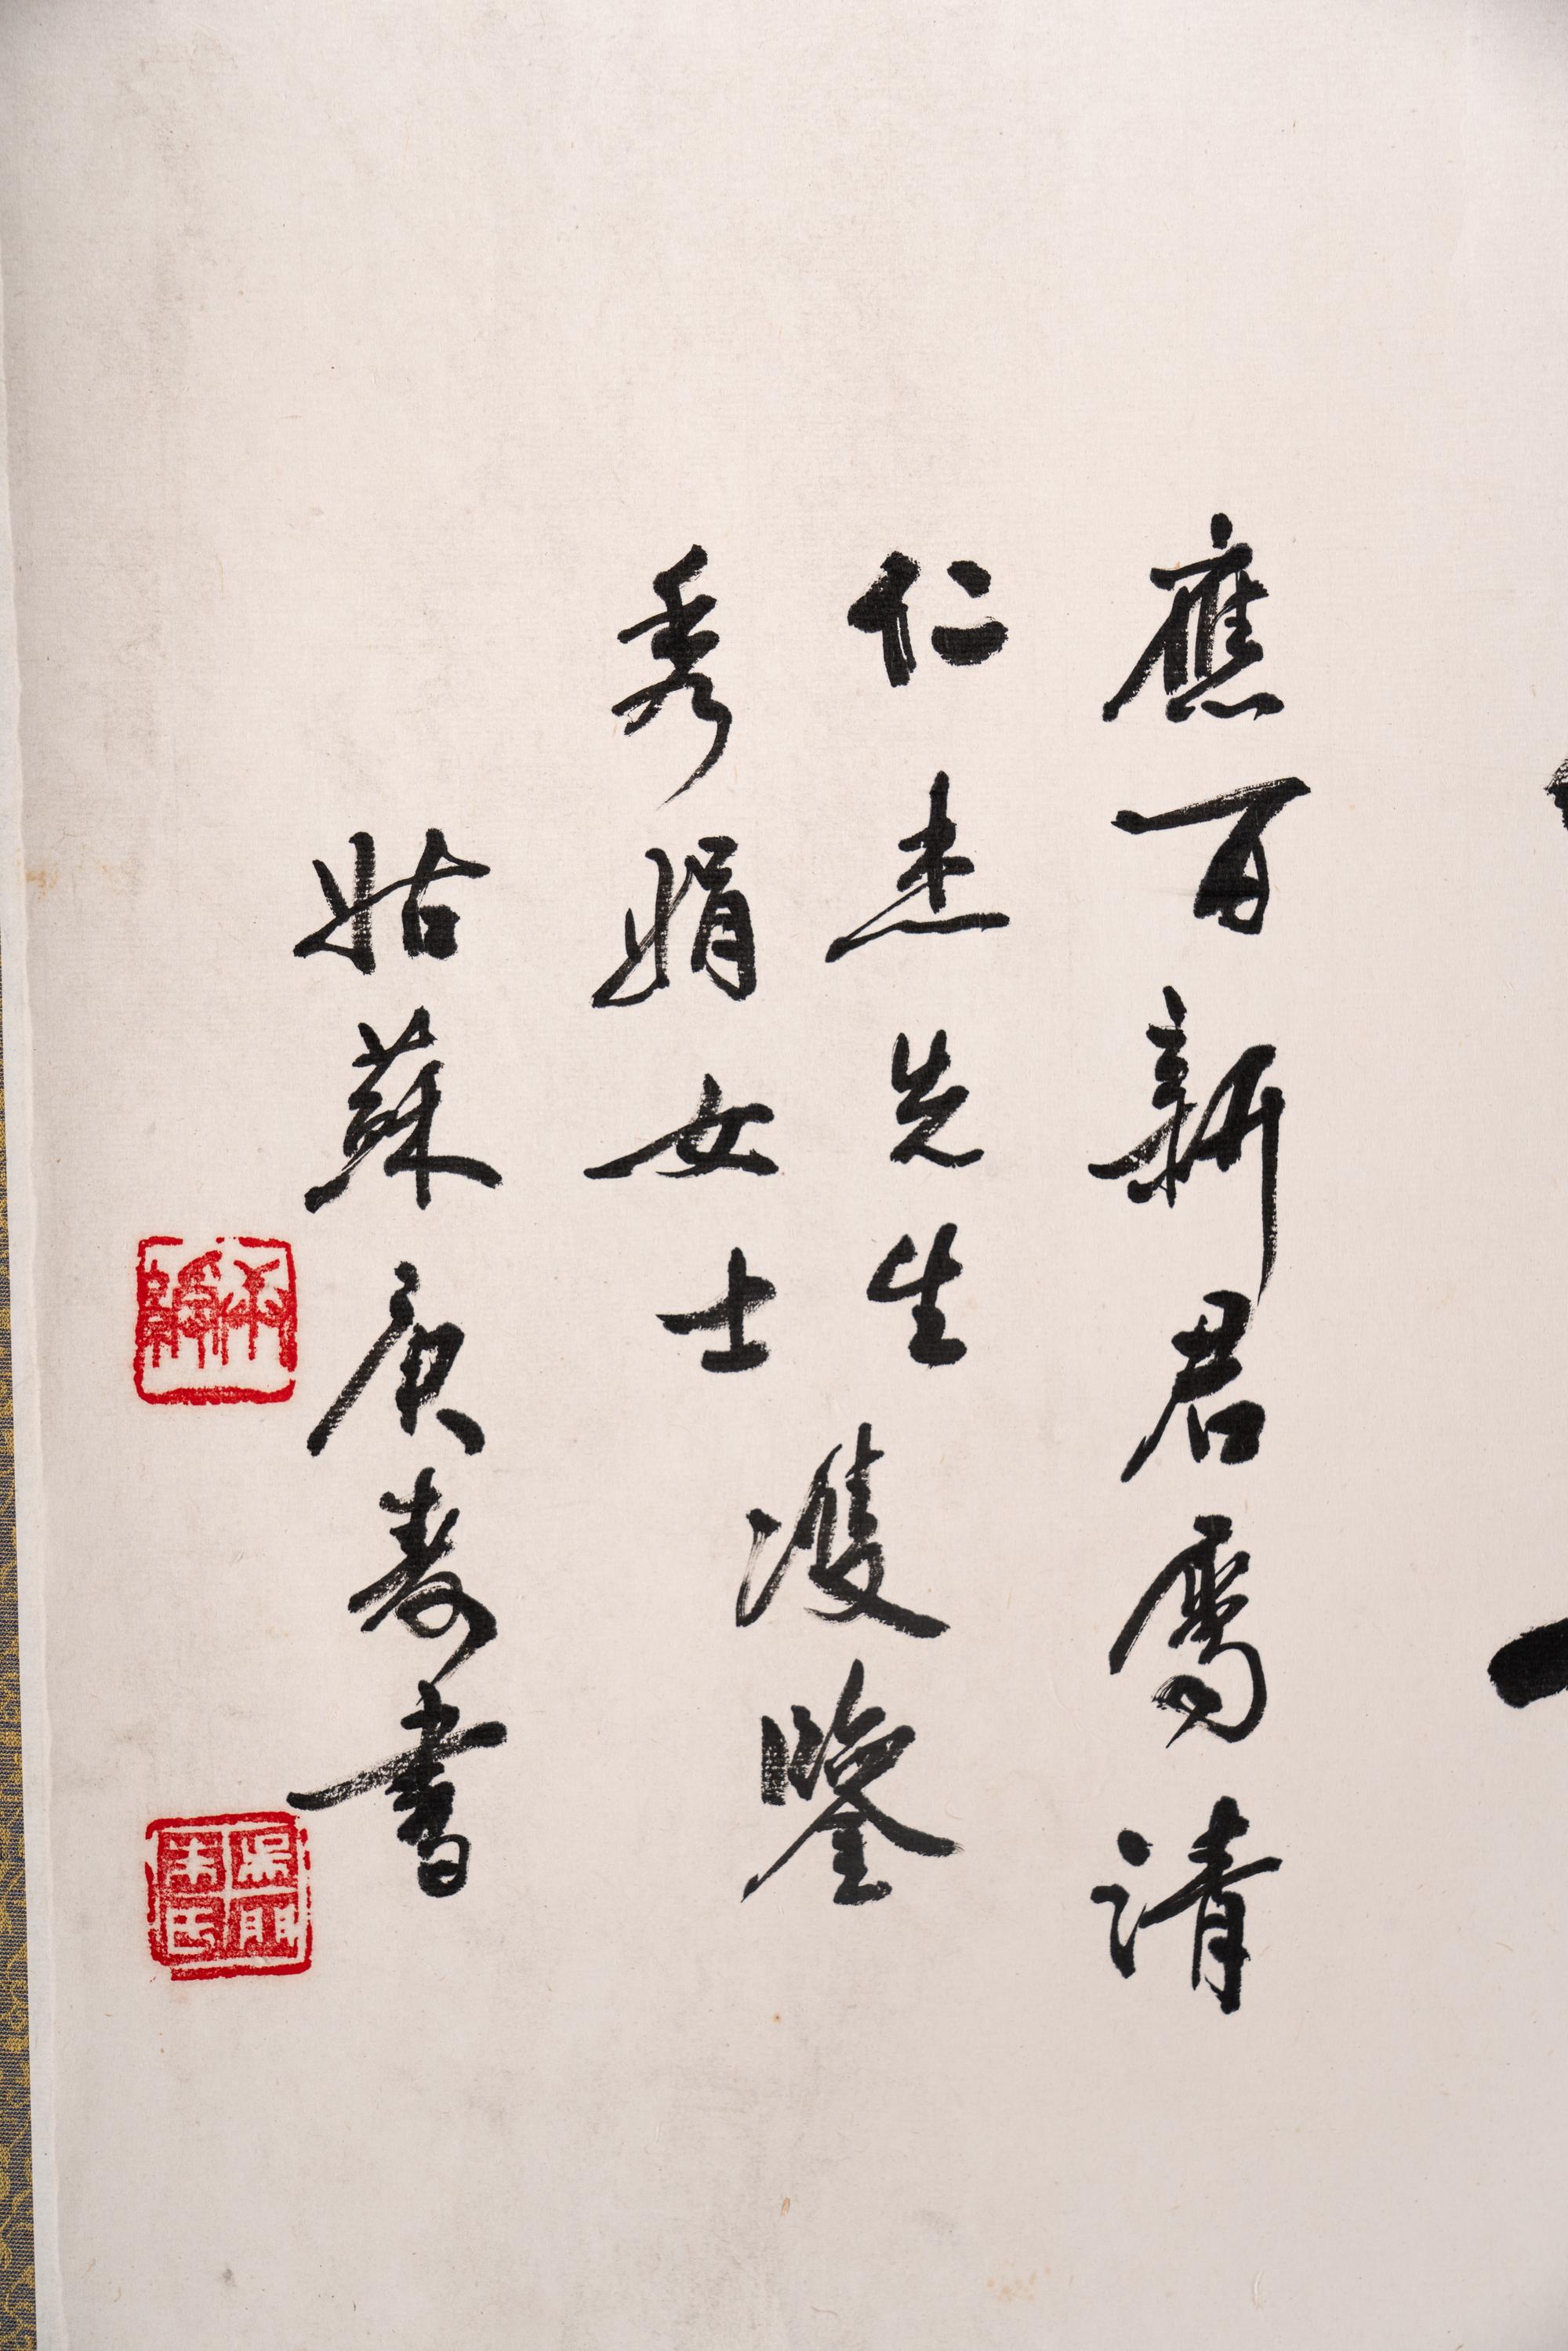 應百新君屬請
仁杰先生
秀娟女士
雙鑒
姑蘇庚壽書
吳門
朱氏